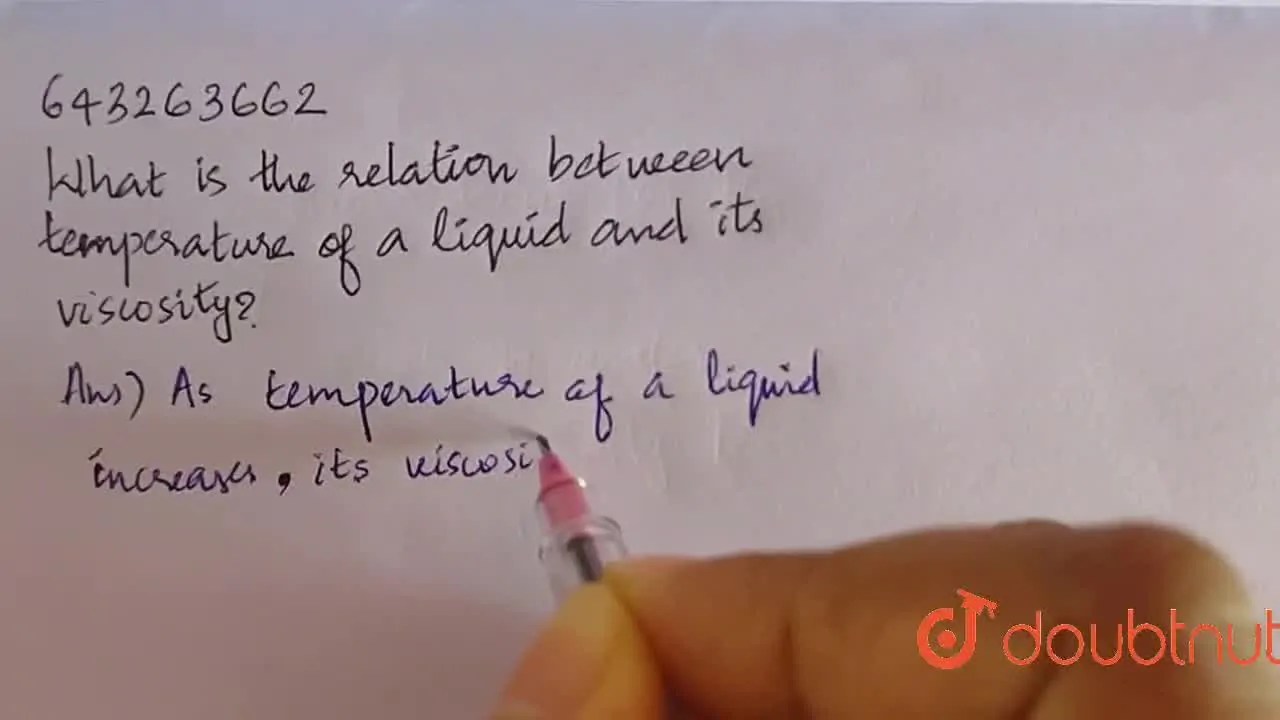 643263662
What is the relation between
temperature of a liquid and its
viscosity?
Ans) As temperature of a liquid
increases, its viscosi
doubtnut